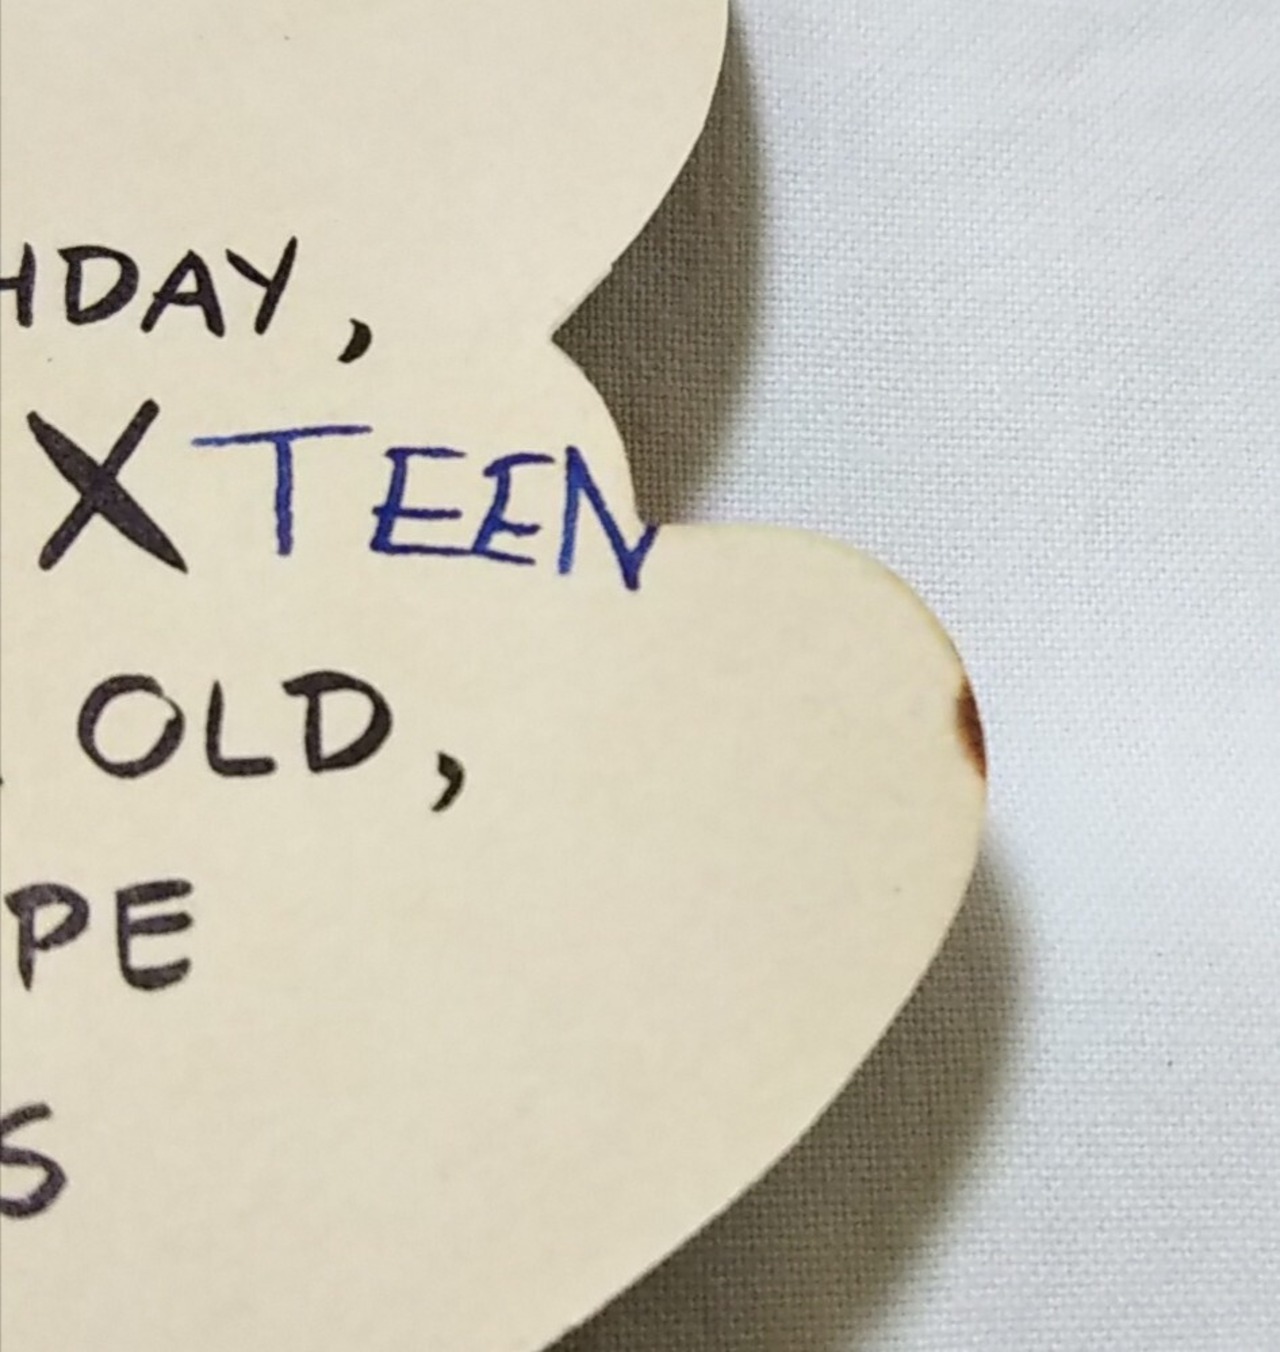 HDAY,
XTEEN
OLD,
PE
S